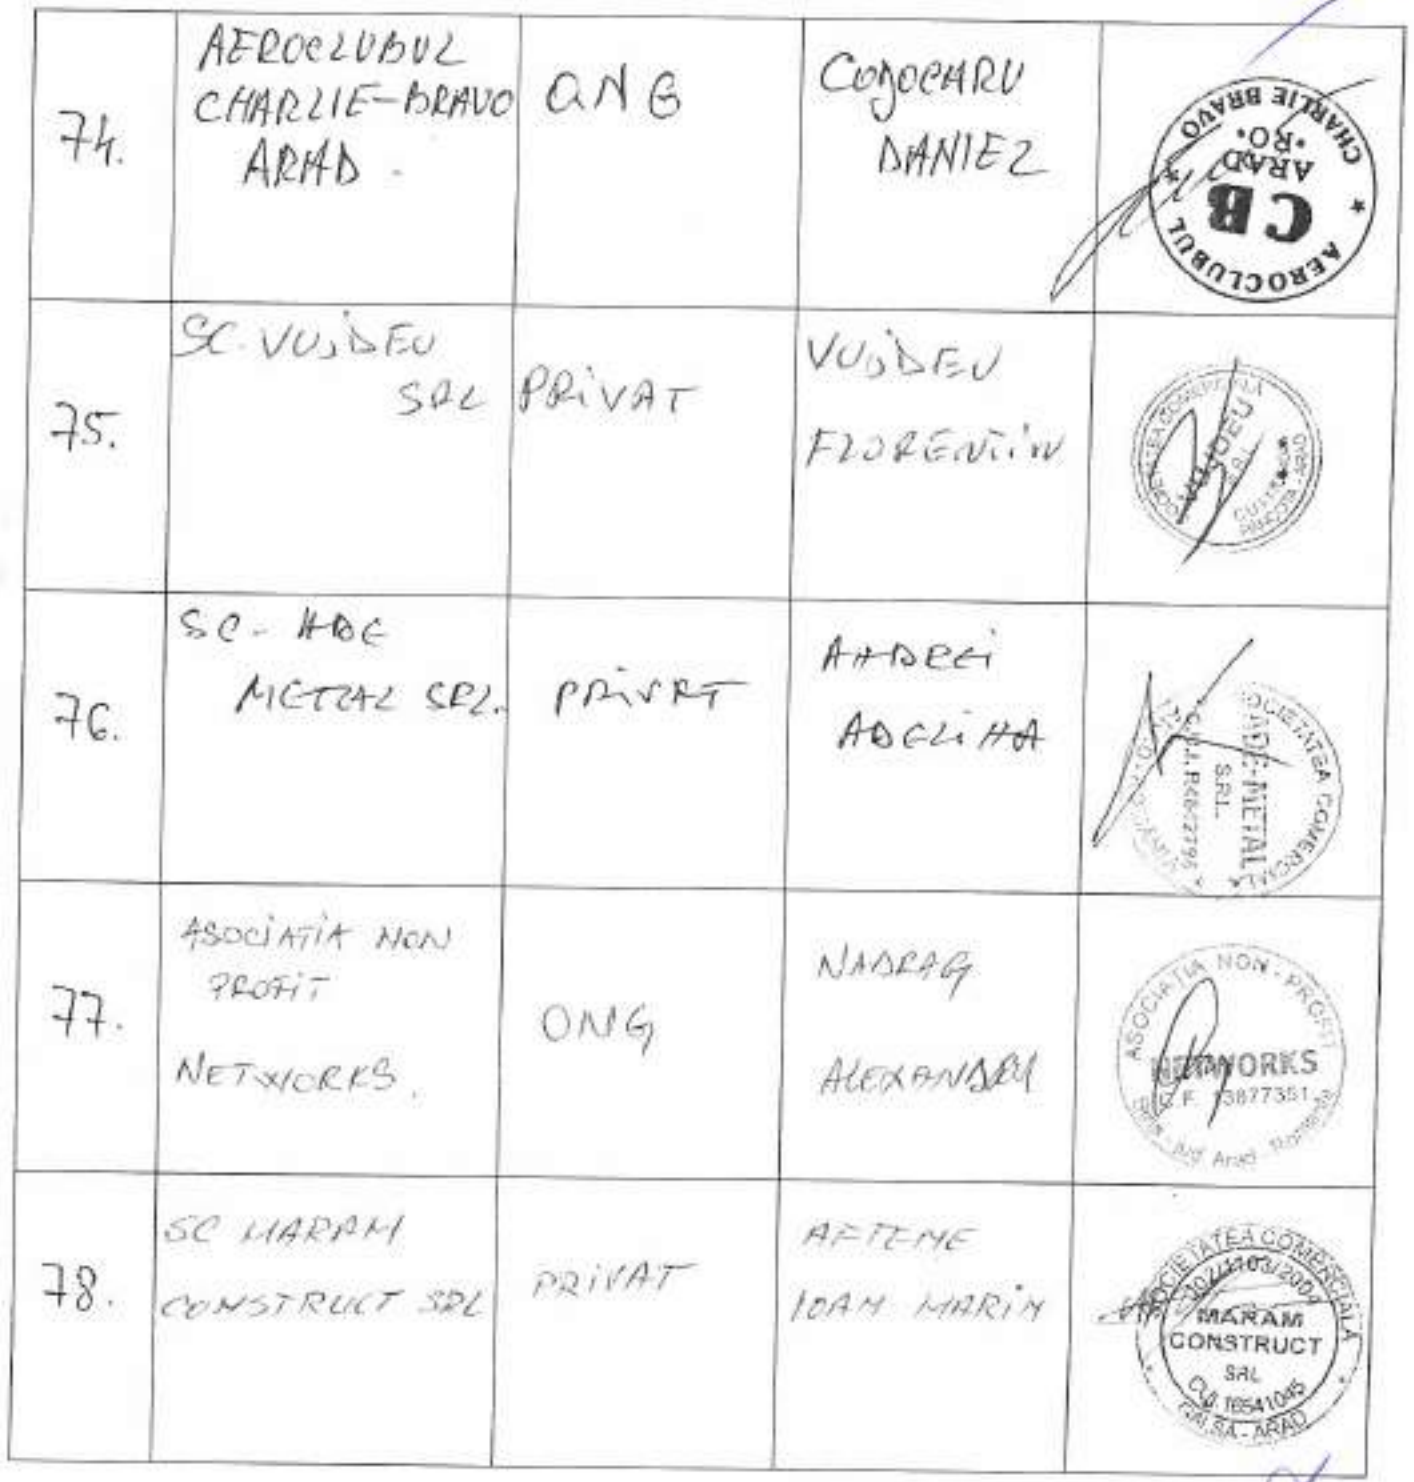 74.
AEROCLUBUL
CHARLIE-BRAVO
ARAD.
ONG
COJOCARU
DANIEL
AEROCLUBUL CHARLIE BRAVO
CB
ARAD
•RO•
75.
SC. VUJDEU
SRL
PRIVAT
VUJDEU
FLORENTIN
SOCIETATEA COMERCIALA
VUJDEU
S.R.L.
PANCOTA - ARAD
76.
SC - ADE
METAL SRL.
PRIVAT
ANDREI
ADELINA
SOCIETATEA COMERCIALA
ADE-METAL
S.R.L.
77.
ASOCIATIA NON
PROFIT
NETWORKS.
ONG
NADRAG
ALEXANDRU
ASOCIATIA NON - PROFIT
NETWORKS
C.F. 13877351
Jud. Arad - Romania
78.
SC MARAM
CONSTRUCT SRL
PRIVAT
AFTEME
IOAN MARIN
SOCIETATEA COMERCIALA
J02/1103/2004
MARAM
CONSTRUCT
SRL
CUI. 16541045
GALSA - ARAD